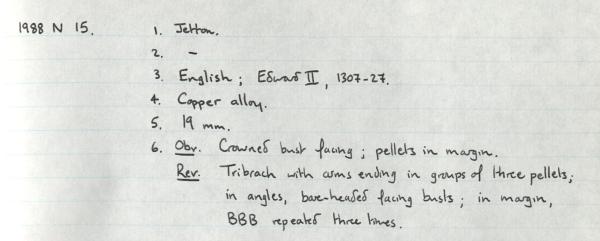 1988 N 15. 1. Jetton.
2. –
3. English; Edward II, 1307-27.
4. Copper alloy.
5. 19 mm.
6. Obv. Crowned bust facing; pellets in margin.
Rev. Tribrach with arms ending in groups of three pellets;
in angles, bare-headed facing busts; in margin,
BBB repeated three times.